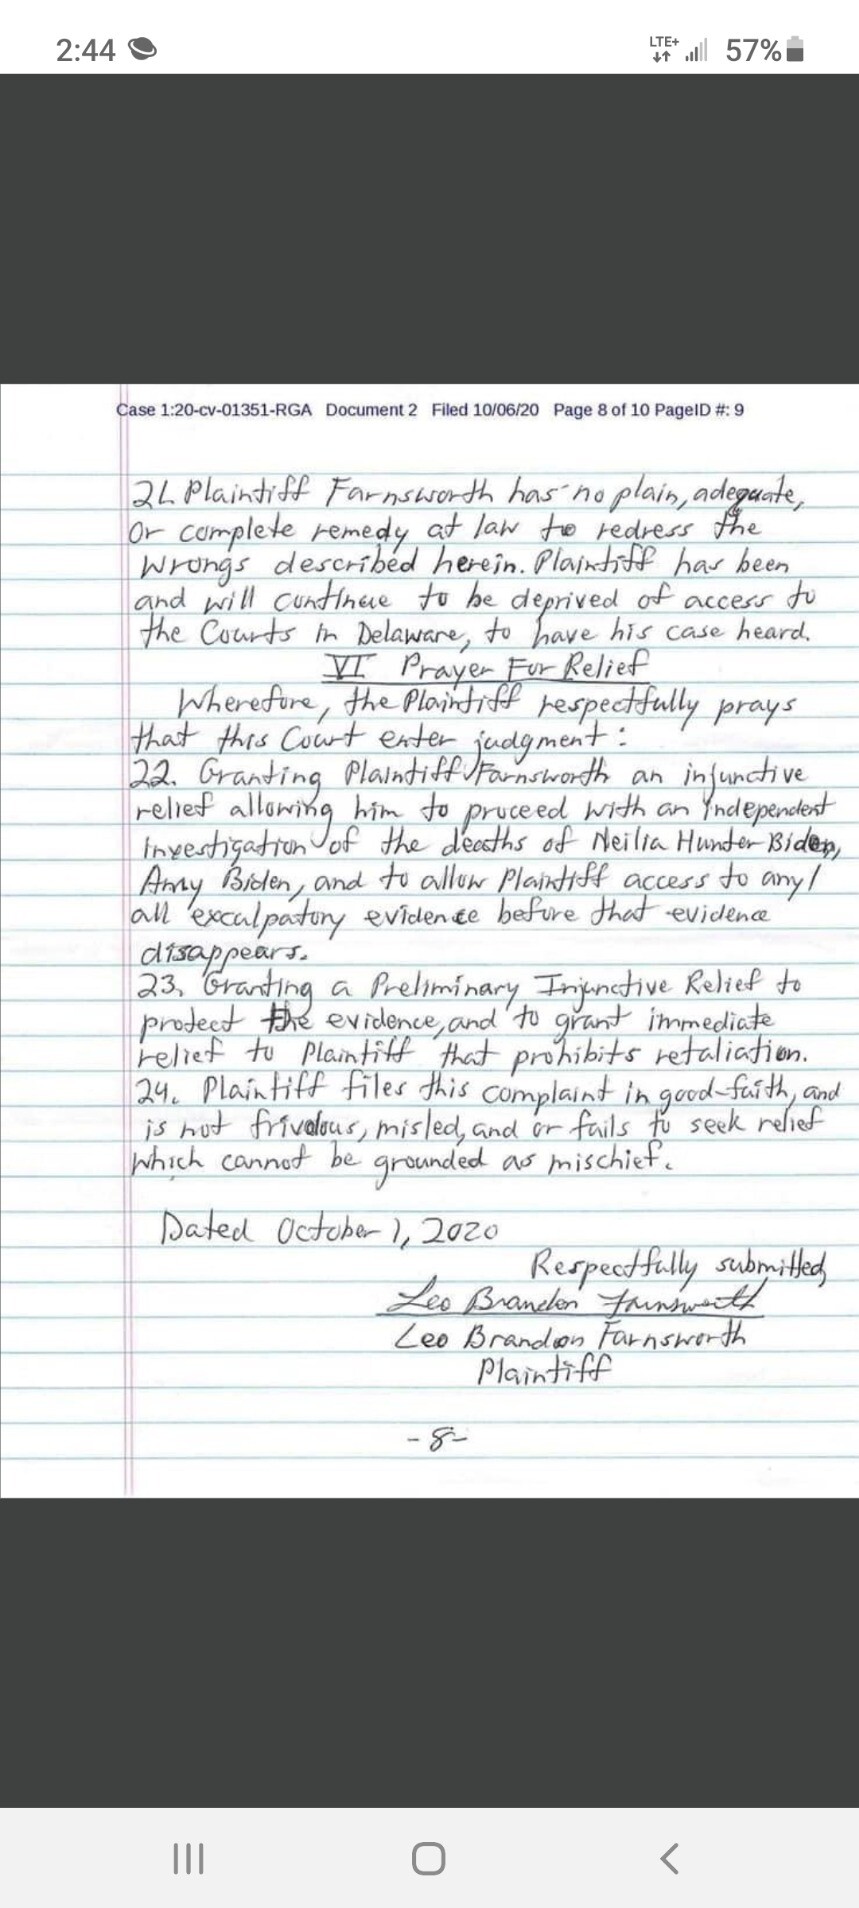 2:44
LTE+ 57%
Case 1:20-cv-01351-RGA Document 2 Filed 10/06/20 Page 8 of 10 PageID #: 9
21. Plaintiff Farnsworth has no plain, adequate,
or complete remedy at law to redress the
wrongs described herein. Plaintiff has been
and will continue to be deprived of access to
the Courts in Delaware, to have his case heard.
VI Prayer For Relief
Wherefore, the Plaintiff respectfully prays
that this Court enter judgment:
22. Granting Plaintiff Farnsworth an injunctive
relief allowing him to proceed with an independent
investigation of the deaths of Neilia Hunter Biden,
Amy Biden, and to allow Plaintiff access to any/
all exculpatory evidence before that evidence
disappears.
23. Granting a Preliminary Injunctive Relief to
protect the evidence, and to grant immediate
relief to Plaintiff that prohibits retaliation.
24. Plaintiff files this complaint in good-faith, and
is not frivolous, misled, and or fails to seek relief
which cannot be grounded as mischief.
Dated October 1, 2020
Respectfully submitted,
Leo Brandon Farnsworth
Leo Brandon Farnsworth
Plaintiff
-8-